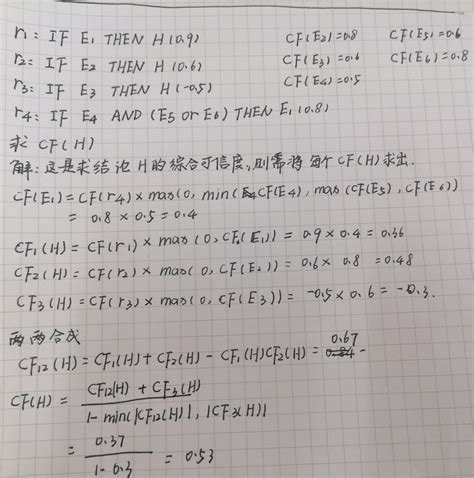 r1: IF E1 THEN H (0.9) CF(E2)=0.8 CF(E5)=0.6
r2: IF E2 THEN H (0.6) CF(E3)=0.6 CF(E6)=0.8
r3: IF E3 THEN H (-0.5) CF(E4)=0.5
r4: IF E4 AND (E5 or E6) THEN E1 (0.8)
求 CF(H)
解: 这是求结论 H 的综合可信度, 则需将每个 CF(H) 求出.
CF(E1) = CF(r4) × max(0, min(CF(E4), max (CF(E5), CF(E6))
= 0.8 × 0.5 = 0.4
CF1(H) = CF(r1) × max(0, CF(E1)) = 0.9 × 0.4 = 0.36
CF2(H) = CF(r2) × max(0, CF(E2)) = 0.6 × 0.8 = 0.48
CF3(H) = CF(r3) × max(0, CF(E3)) = -0.5 × 0.6 = -0.3.
两两合成
CF12(H) = CF1(H) + CF2(H) - CF1(H)CF2(H) = 0.67
CF(H) = CF12(H) + CF3(H)
1 - min(|CF12(H)|, |CF3(H)|
= 0.37
1 - 0.3
= 0.53